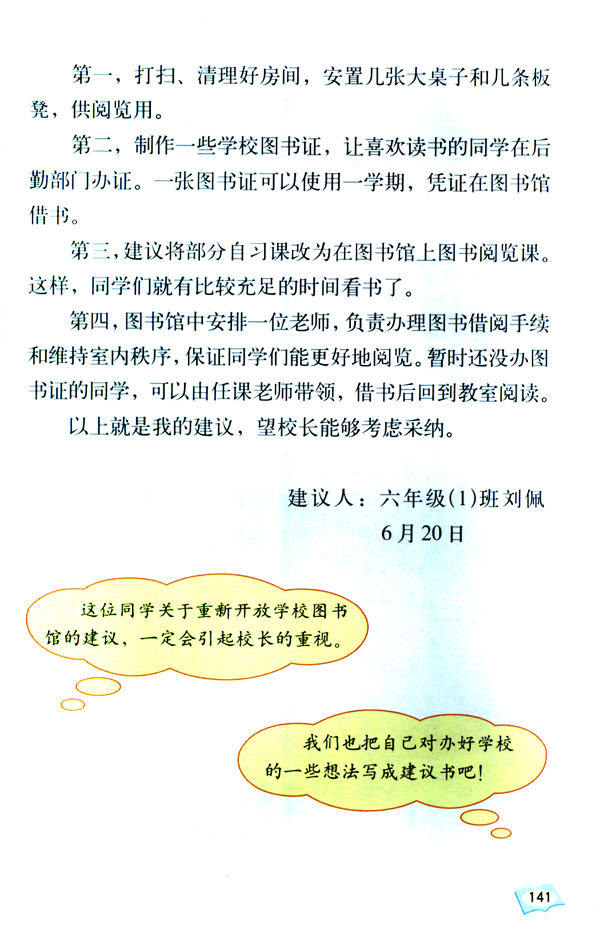 第一，打扫、清理好房间，安置几张大桌子和几条板
凳，供阅览用。
第二，制作一些学校图书证，让喜欢读书的同学在后
勤部门办证。一张图书证可以使用一学期，凭证在图书馆
借书。
第三，建议将部分自习课改为在图书馆上图书阅览课。
这样，同学们就有比较充足的时间看书了。
第四，图书馆中安排一位老师，负责办理图书借阅手续
和维持室内秩序，保证同学们能更好地阅览。暂时还没办图
书证的同学，可以由任课老师带领，借书后回到教室阅读。
以上就是我的建议，望校长能够考虑采纳。
建议人：六年级(1)班刘佩
6月20日
这位同学关于重新开放学校图书
馆的建议，一定会引起校长的重视。
我们也把自己对办好学校
的一些想法写成建议书吧！
141